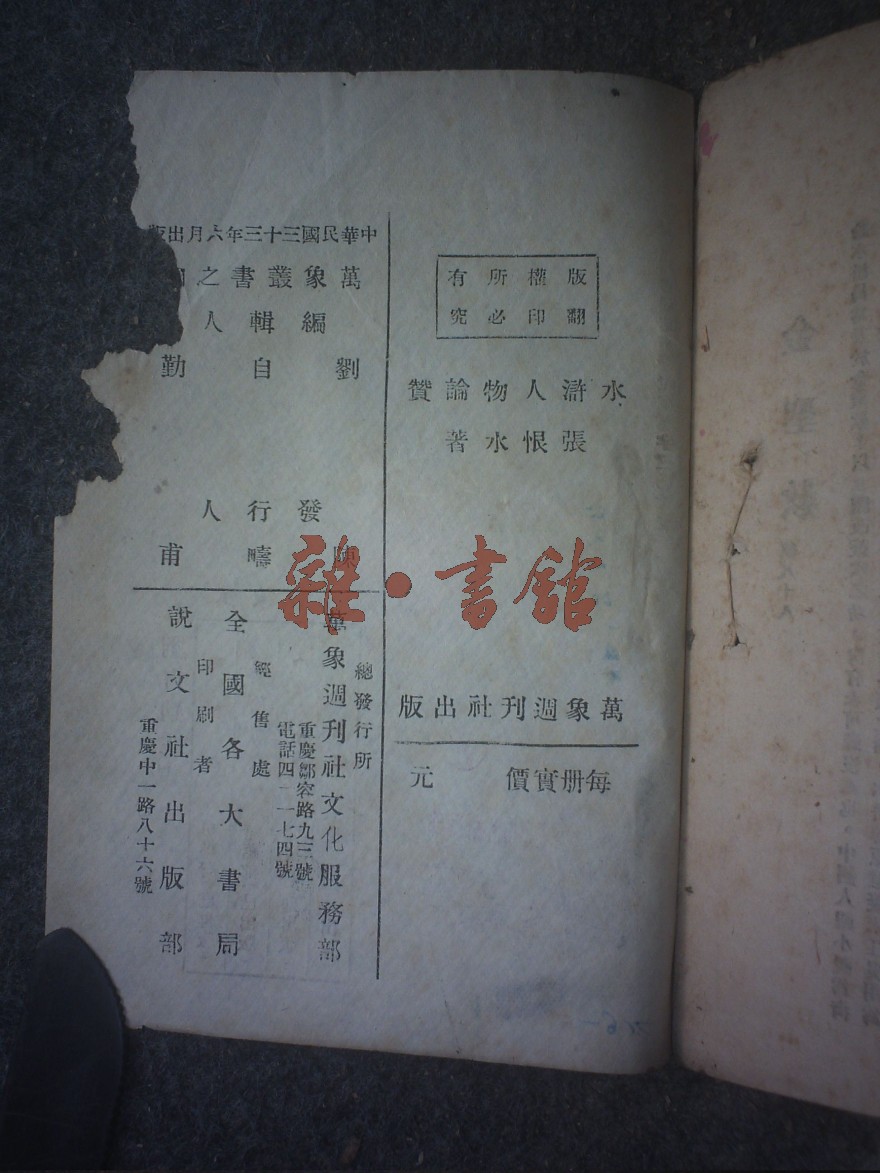 版權所有
翻印必究
水滸人物論贊
張恨水著
萬象週刊社出版
每册實價 元
中華民國三十三年六月出版
萬象叢書之
編輯人
劉自勤
發行人
陳疇甫
總發行所
萬象週刊社文化服務部
重慶鄒容路九三號
電話四一一七四號
經售處
全國各大書局
印刷者
說文社出版部
重慶中一路八十六號
雜·書館